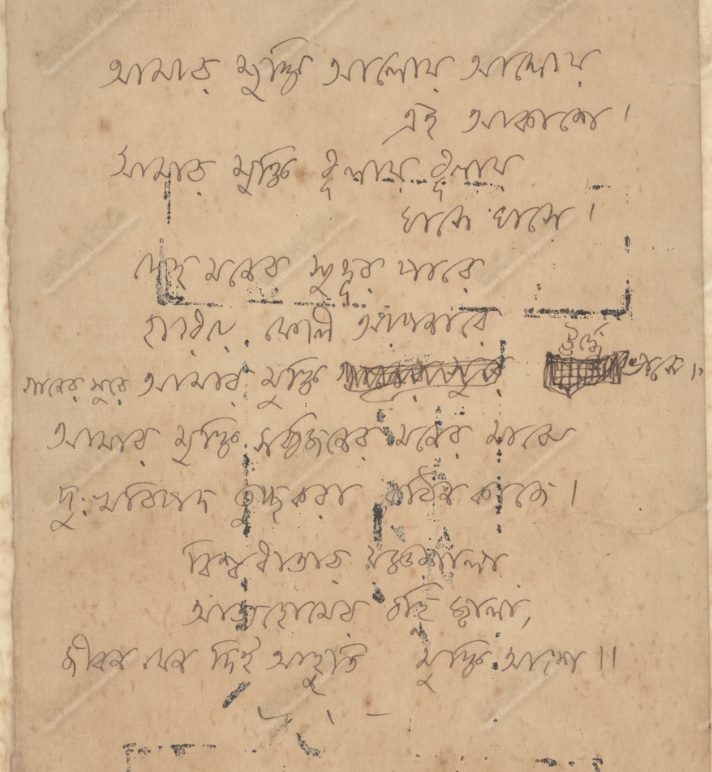 আমার মুক্তি আলোয় আলোয়
এই আকাশে।
আমার মুক্তি ধূলায় ধূলায়
ঘাসে ঘাসে।
দেহ মনের সুদূর পারে
হারিয়ে ফেলি আপনারে
গানের সুরে আমার মুক্তি ঊর্দ্ধে ভাসে॥
আমার মুক্তি সর্ব্বজনের মনের মাঝে
দুঃখবিপদ তুচ্ছকরা কঠিন কাজে।
বিশ্বধাতার যজ্ঞশালা
আত্মহোমের বহ্নি জ্বালা,
জীবন যেন দিই আহুতি মুক্তি আশে॥